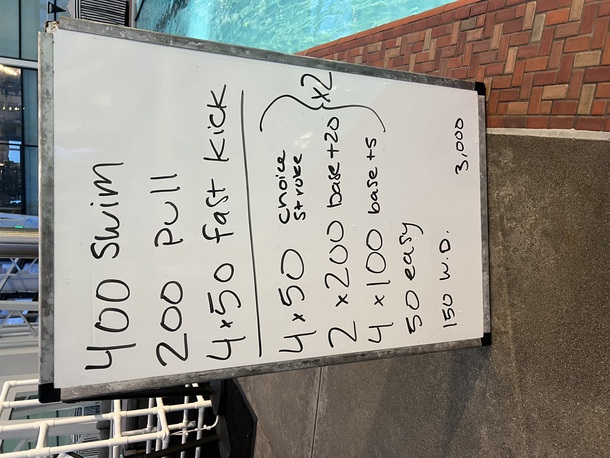 400 swim
200 pull
4x50 fast kick
4 x 50 choice stroke
2 x 200 base +20
4 x 100 base +5
x2
50 easy
150 W.D.
3,000